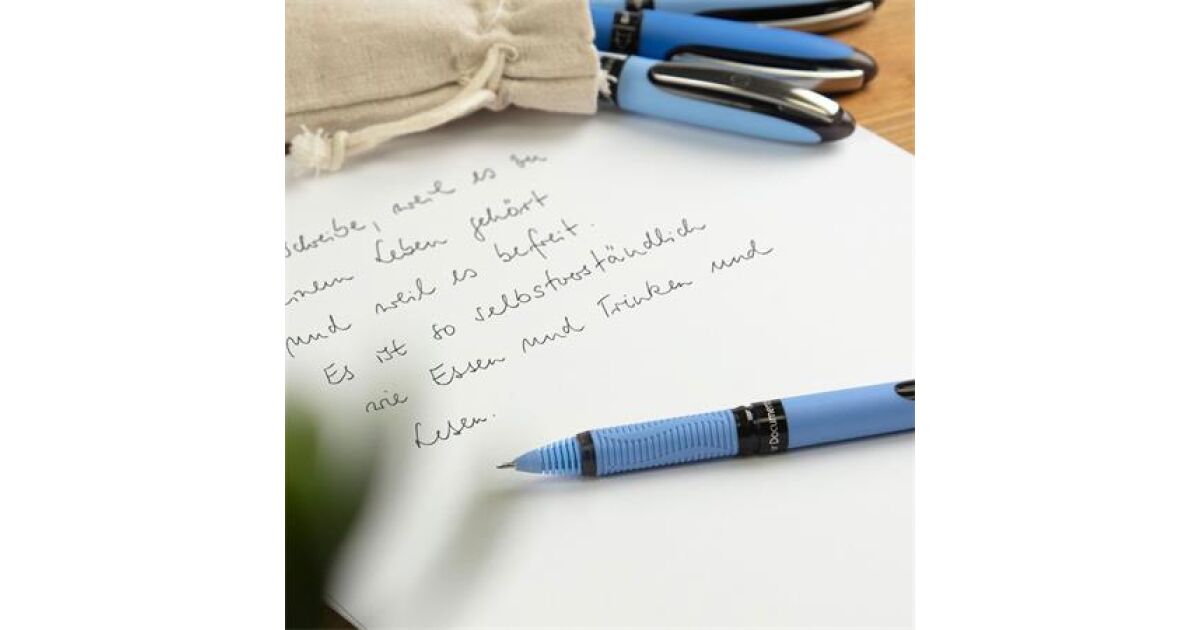 schreibe, weil es zu
einem Leben gehört
und weil es befreit.
Es ist so selbstverständlich
wie Essen und Trinken und
Lesen.